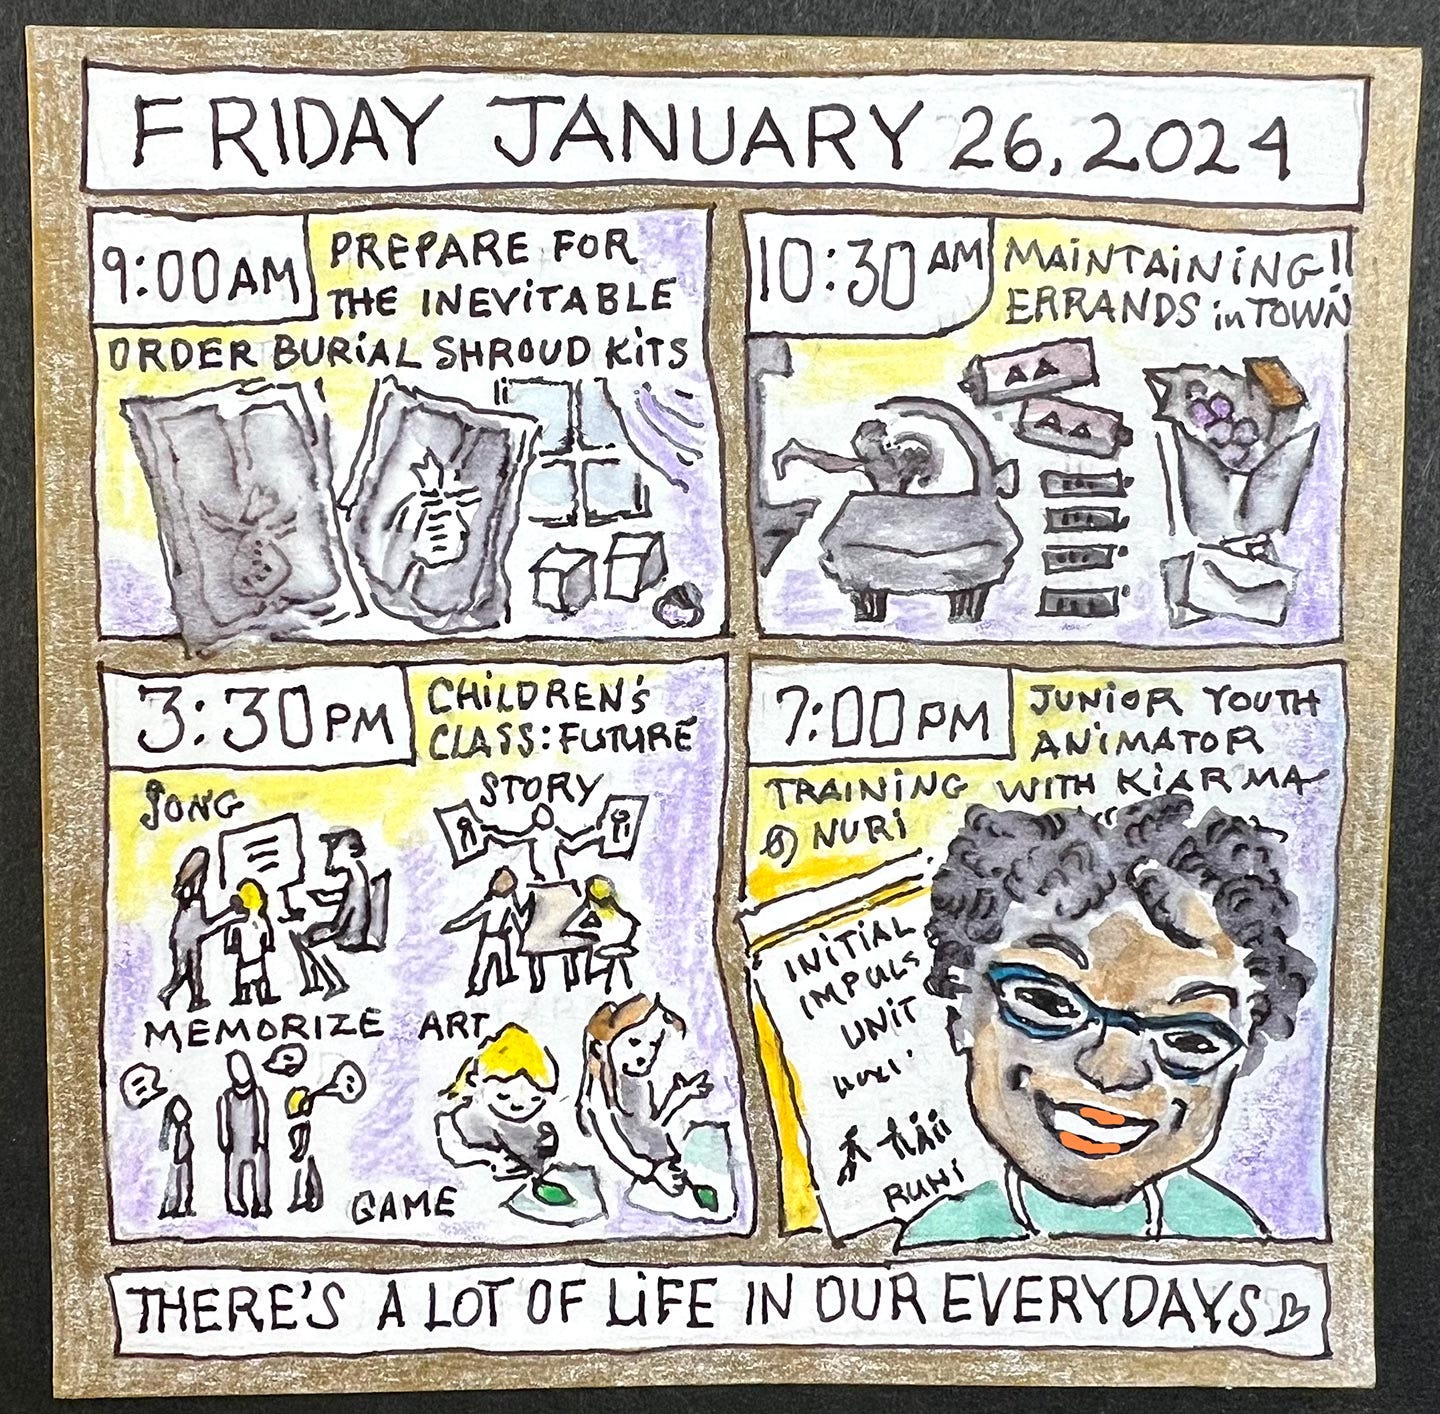 FRIDAY JANUARY 26, 2024
9:00 AM
PREPARE FOR
THE INEVITABLE
ORDER BURIAL SHROUD KITS
10:30 AM
MAINTAINING!!
ERRANDS in TOWN
3:30 PM
CHILDREN'S
CLASS: FUTURE
SONG
STORY
MEMORIZE
ART
GAME
7:00 PM
JUNIOR YOUTH
ANIMATOR
TRAINING WITH KIARMA
@ NURI
INITIAL
IMPULS
UNIT
RUHI
THERE'S A LOT OF LIFE IN OUR EVERYDAYS